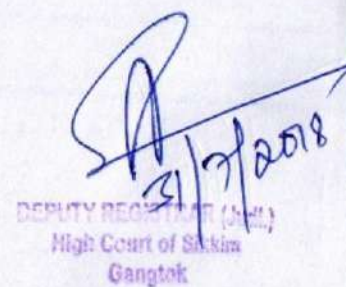 31/7/2018
DEPUTY REGISTRAR (Judl.)
High Court of Sikkim
Gangtok